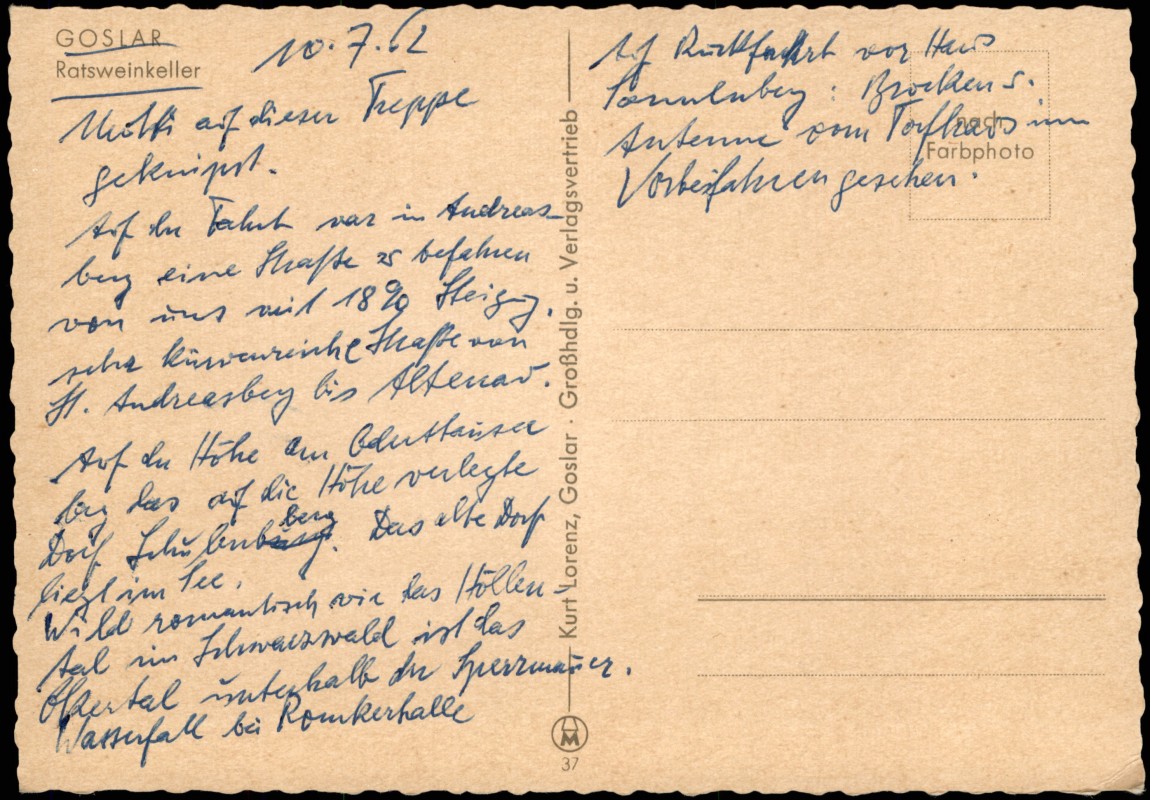 GOSLAR
Ratsweinkeller
10.7.62
Mutti auf dieser Treppe
geknipst.
Auf der Fahrt war in Andreas-
berg eine Straße zu befahren
von uns mit 18% Steigung.
sehr kurvenreiche Straße von
St. Andreasberg bis Altenau.
Auf der Höhe am
lag das auf die Höhe verlegte
Dorf Schulenberg. Das alte Dorf
liegt im See.
Wild romantisch wie das Höllen-
tal im Schwarzwald ist das
Okertal unterhalb der Sperrmauer.
Wasserfall bei Romkerhalle
Kurt Lorenz, Goslar · Großhdlg. u. Verlagsvertrieb
M
37
Auf Rückfahrt vor Haus
Sonnenberg: Brocken u.
Antenne vom Torfhaus im
Vorbeifahren gesehen.
nach
Farbphoto